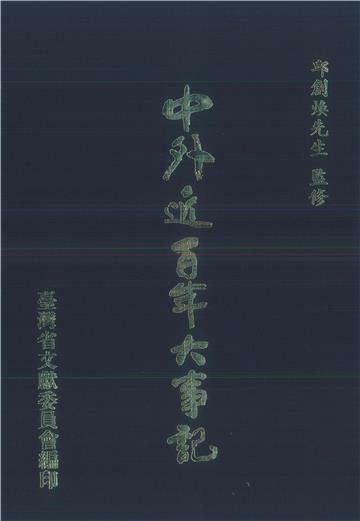 邱創煥先生 監修
中外近百年大事記
臺灣省文獻委員會編印